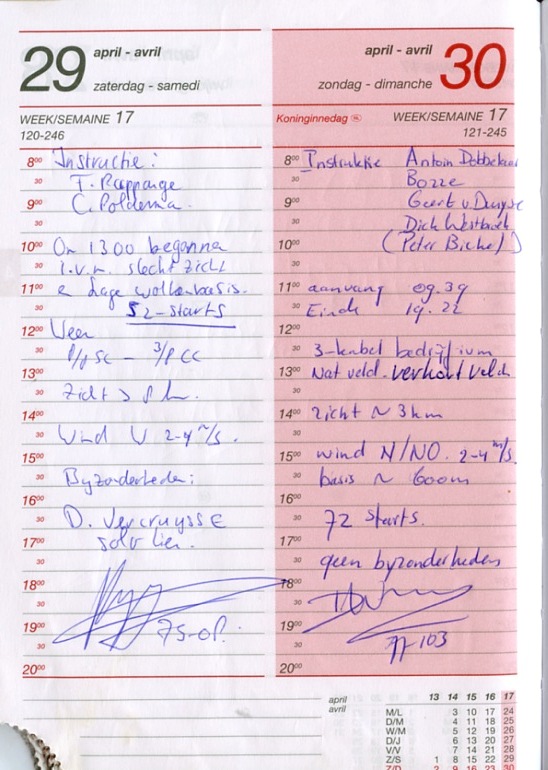 29
april - avril
zaterdag - samedi
WEEK/SEMAINE 17
120-246
8⁰⁰ Instructie:
30 F. Rappange
9⁰⁰ C. Poldema.
30
10⁰⁰ Om 1300 begonnen
30 i.v.m. slecht zicht
11⁰⁰ e lage wolkenbasis.
30 52-starts
12⁰⁰ Weer
30
13⁰⁰
30 Zicht >
14⁰⁰
30 Wind W 2-4 m/s.
15⁰⁰
30 Byzonderheden:
16⁰⁰
30 D. Vercruysse
17⁰⁰ solo lier.
30
18⁰⁰
30
19⁰⁰
30
20⁰⁰
april - avril
30
zondag - dimanche
Koninginnedag NL WEEK/SEMAINE 17
121-245
8⁰⁰ Instruktie Antoin Dobbelaer
30 Bozze
9⁰⁰ Geert v
30 Dick
10⁰⁰ (Peter Bickel)
30
11⁰⁰ aanvang 09.39
30 Einde 19.22
12⁰⁰
30 3-kabel bedrijf ium
13⁰⁰ Nat veld.
30
14⁰⁰ zicht ~ 3 km
30
15⁰⁰ wind N/NO. 2-4 m/s.
30 basis ~ 600m
16⁰⁰
30 72 starts.
17⁰⁰
30 geen byzonderheden
18⁰⁰
30
19⁰⁰
30 77-103
20⁰⁰
april
avril
13 14 15 16 17
M/L 3 10 17 24
D/M 4 11 18 25
W/M 5 12 19 26
D/J 6 13 20 27
V/V 7 14 21 28
Z/S 1 8 15 22 29
Z/D 2 9 16 23 30